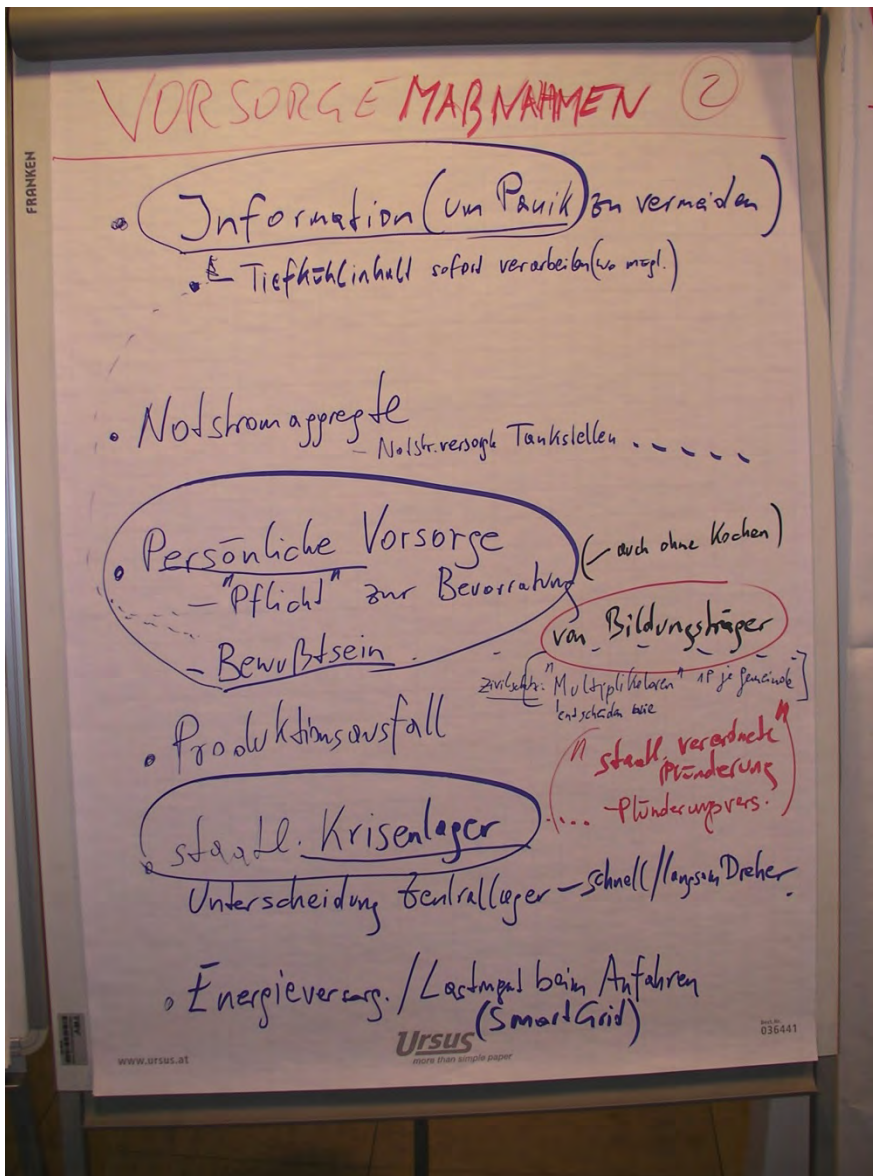 VORSORGEMAẞNAHMEN ②
FRANKEN
• Information (um Panik) zu vermeiden)
• - Tiefkühlinhalt sofort verarbeiten (wo mögl.)
• Notstromaggregte
- Notstr.versorgte Tankstellen . . . . .
• Persönliche Vorsorge
(- auch ohne Kochen)
- "Pflicht" zur Bevorratung
von Bildungsträger
- Bewußtsein
Zivilschtz: "Multiplikatoren" 1P je Gemeinde
entscheiden
• Produktionsausfall
"staatl. verordnete"
Plünderung
... - Plünderungsvers.
• staatl. Krisenlager
Unterscheidung Zentrallager - schnell/langsam Dreher
• Energieversorg./Lastmgmt beim Anfahren
(SmartGrid)
Ursus
more than simple paper
www.ursus.at
Best.Nr.
036441